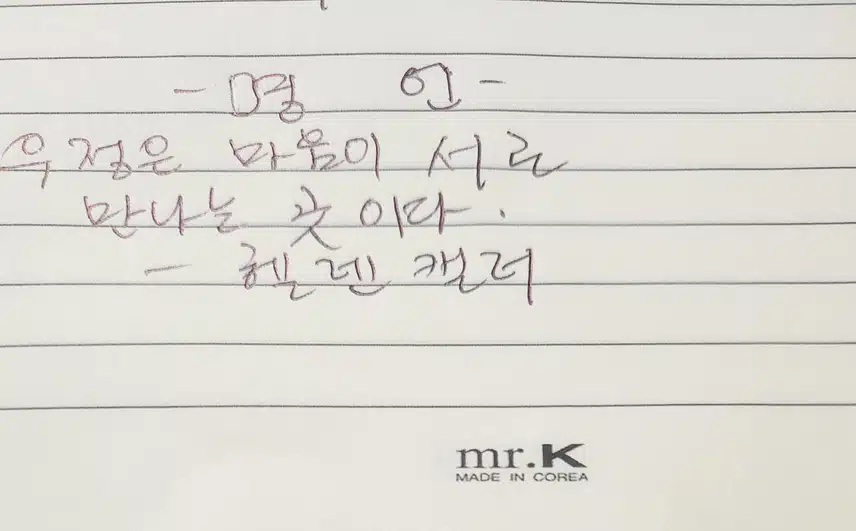 - 명 언 -
우정은 마음이 서로
만나는 곳이다.
- 헬렌 캘러
mr.K
MADE IN COREA